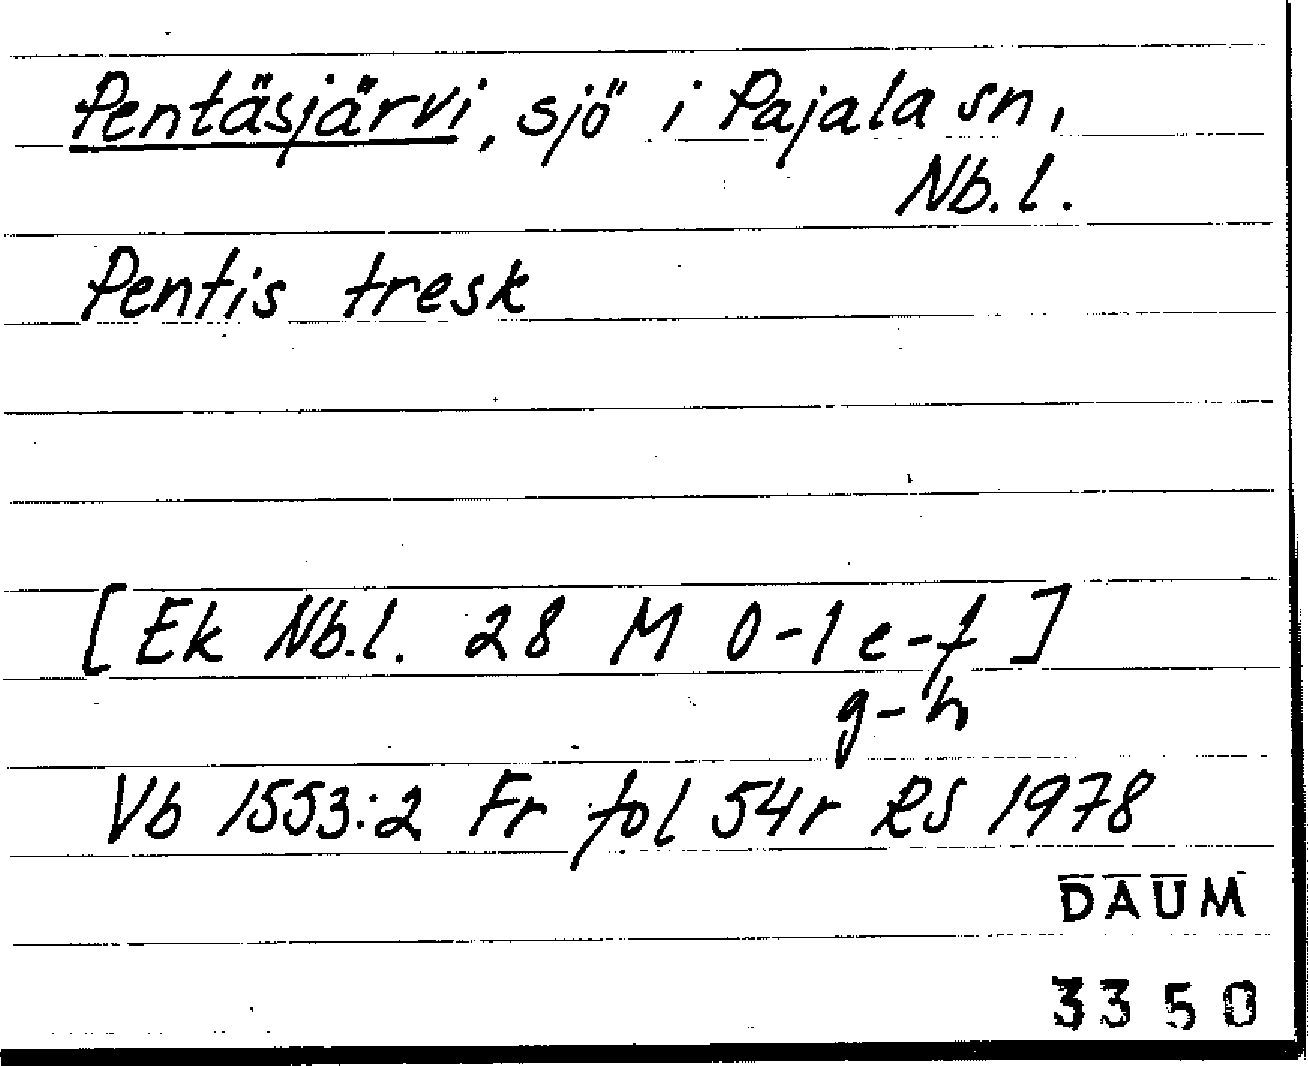 Pentäsjärvi, sjö i Pajala sn,
Nb.l.
Pentis tresk
[Ek Nb.l. 28 M 0-1 e-f]
g-h
Vb 1553:2 Fr fol 54r RS 1978
DAUM
3350